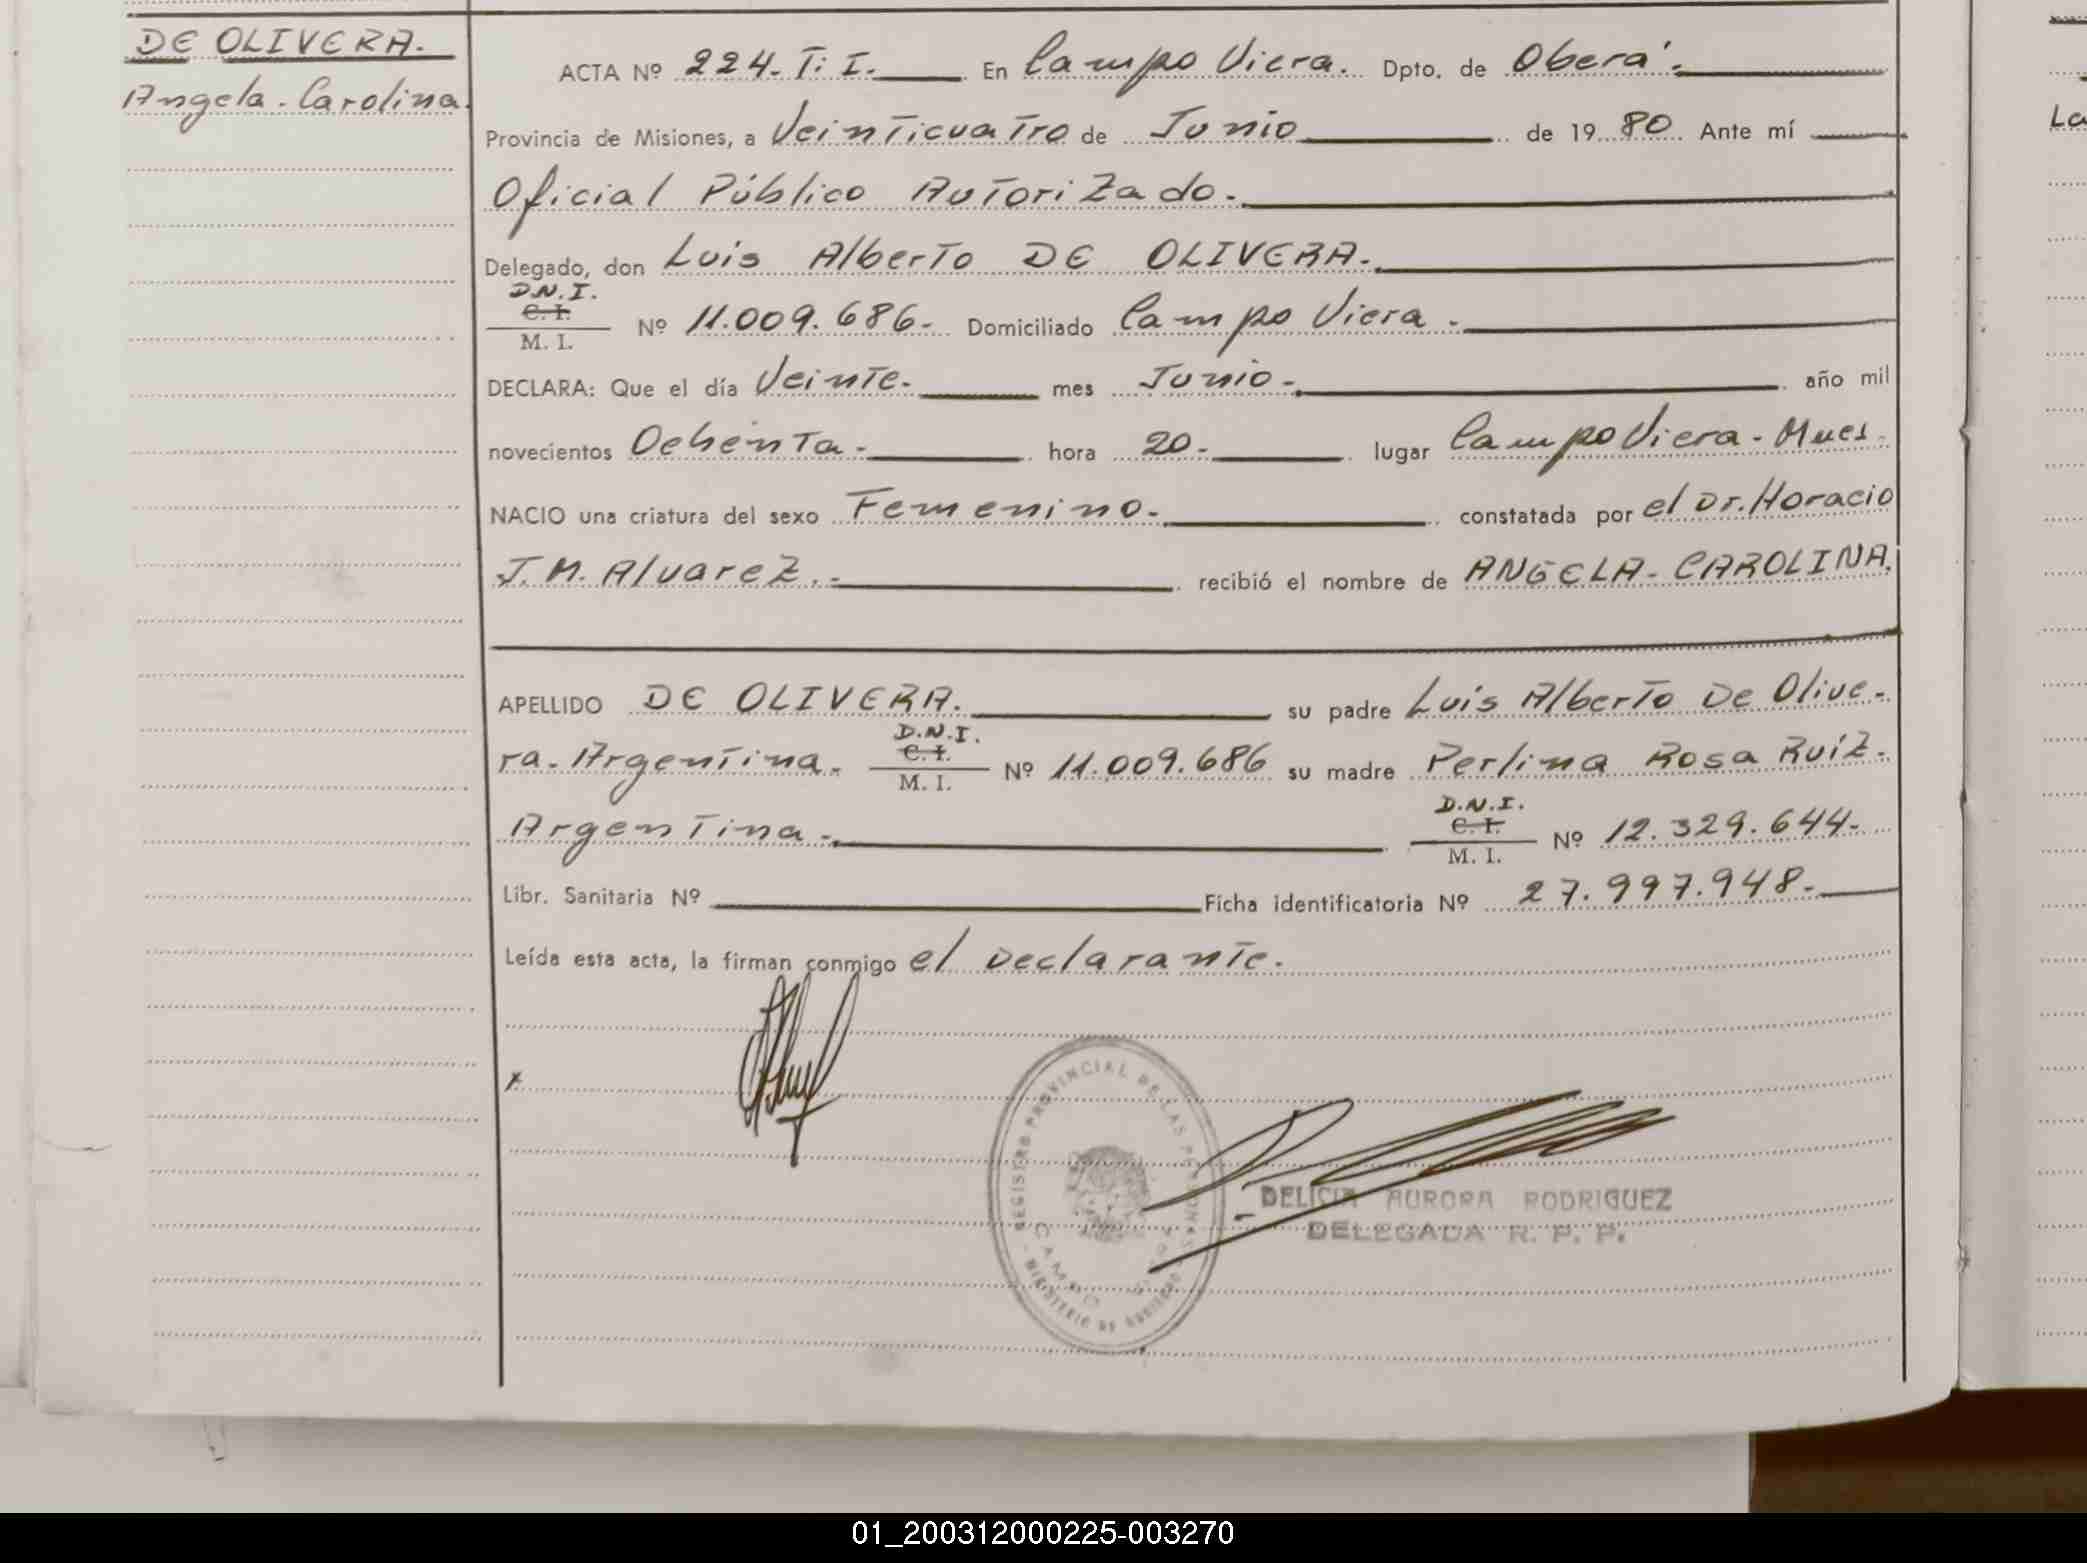 DE OLIVERA.
Angela. Carolina.
ACTA Nº 224. T. I. En Campo Viera. Dpto. de Oberá.
Provincia de Misiones, a Veinticuatro de Junio de 1980. Ante mí
Oficial Público Autorizado.
Delegado, don Luis Alberto DE OLIVERA.
D.N.I.
C. I.
M. I.
Nº 11.009.686. Domiciliado Campo Viera.
DECLARA: Que el día Veinte. mes Junio. año mil
novecientos Ochenta. hora 20. lugar Campo Viera. Mnes.
NACIO una criatura del sexo Femenino. constatada por el Dr. Horacio
J. M. Alvarez. recibió el nombre de ANGELA - CAROLINA.
APELLIDO DE OLIVERA. su padre Luis Alberto De Olive-
D.N.I.
C. I.
ra. Argentina. M. I. Nº 11.009.686 su madre Perlina Rosa Ruiz.
D.N.I.
C. I.
Argentina. M. I. Nº 12.329.644.
Libr. Sanitaria Nº Ficha identificatoria Nº 27.997.948.
Leída esta acta, la firman conmigo el Declarante.
x
REGISTRO PROVINCIAL DE LAS PERSONAS
CAMPO
MINISTERIO DE GOBIERNO
DELICIA AURORA RODRIGUEZ
DELEGADA R. P. P.
La
01_200312000225-003270